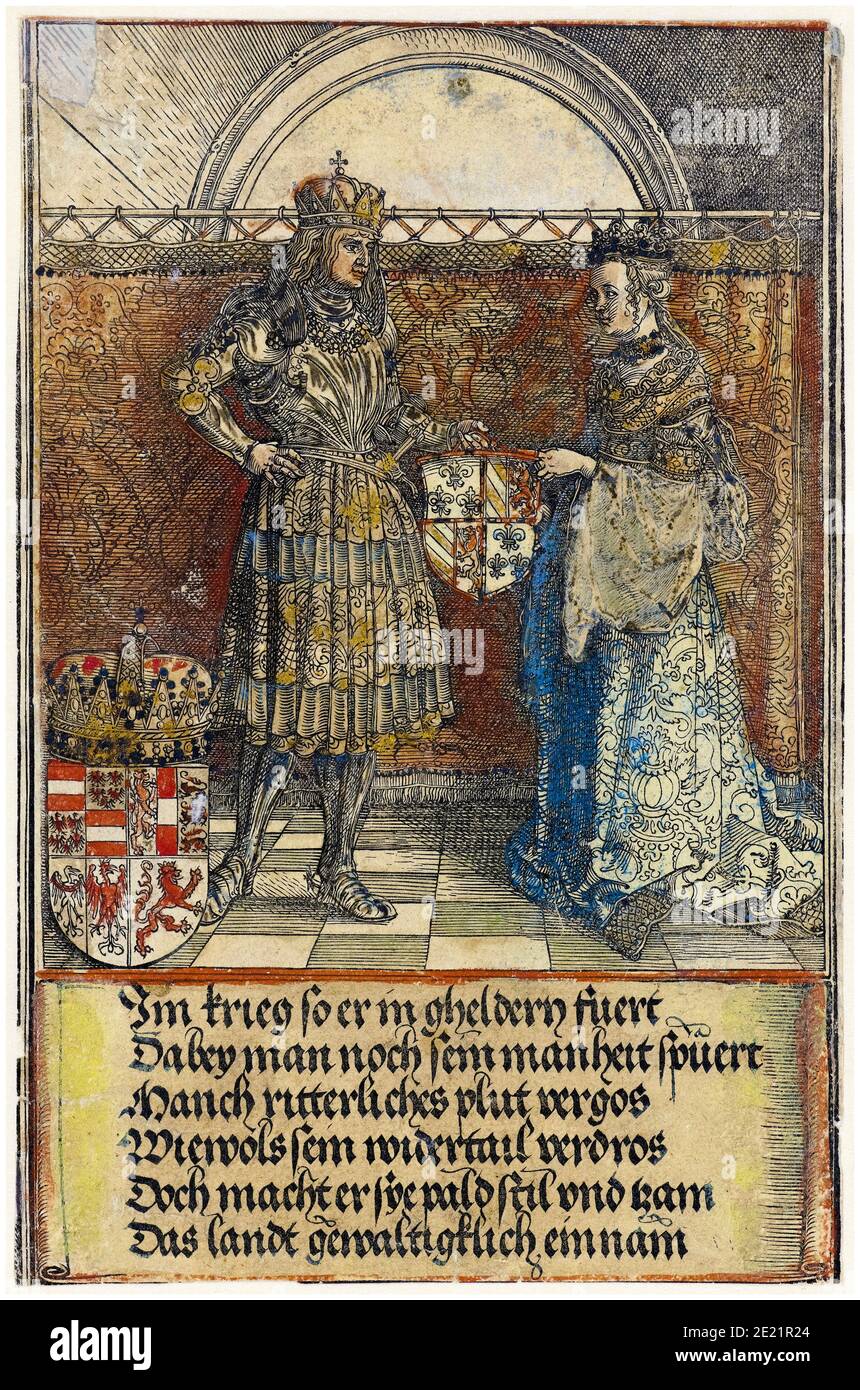 alamy
alamy
a
a
alamy
a
a
alamy
Im krieg so er in gheldern fuert
Dabey man noch sein manheit spuert
Manch ritterliches plut vergos
Wiewols sein widertail verdros
Doch macht er sye pald stil vnd tzam
Das landt gewaltigklich einnam
alamy
Image ID: 2E21R24
www.alamy.com